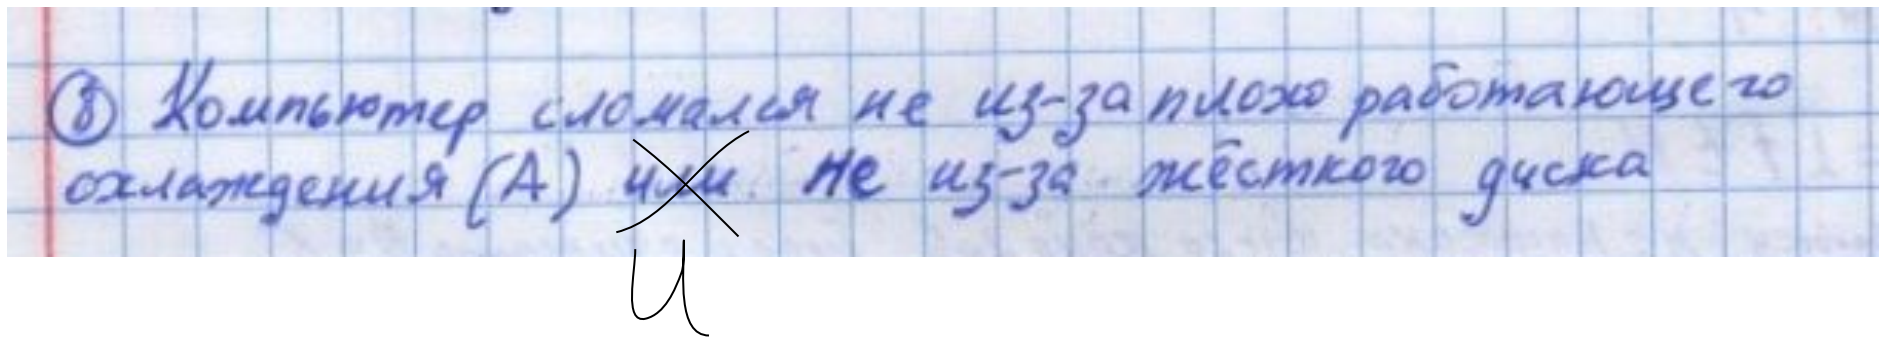 ⑧ Компьютер сломался не из-за плохо работающего
охлаждения (А) или не из-за жёсткого диска
и